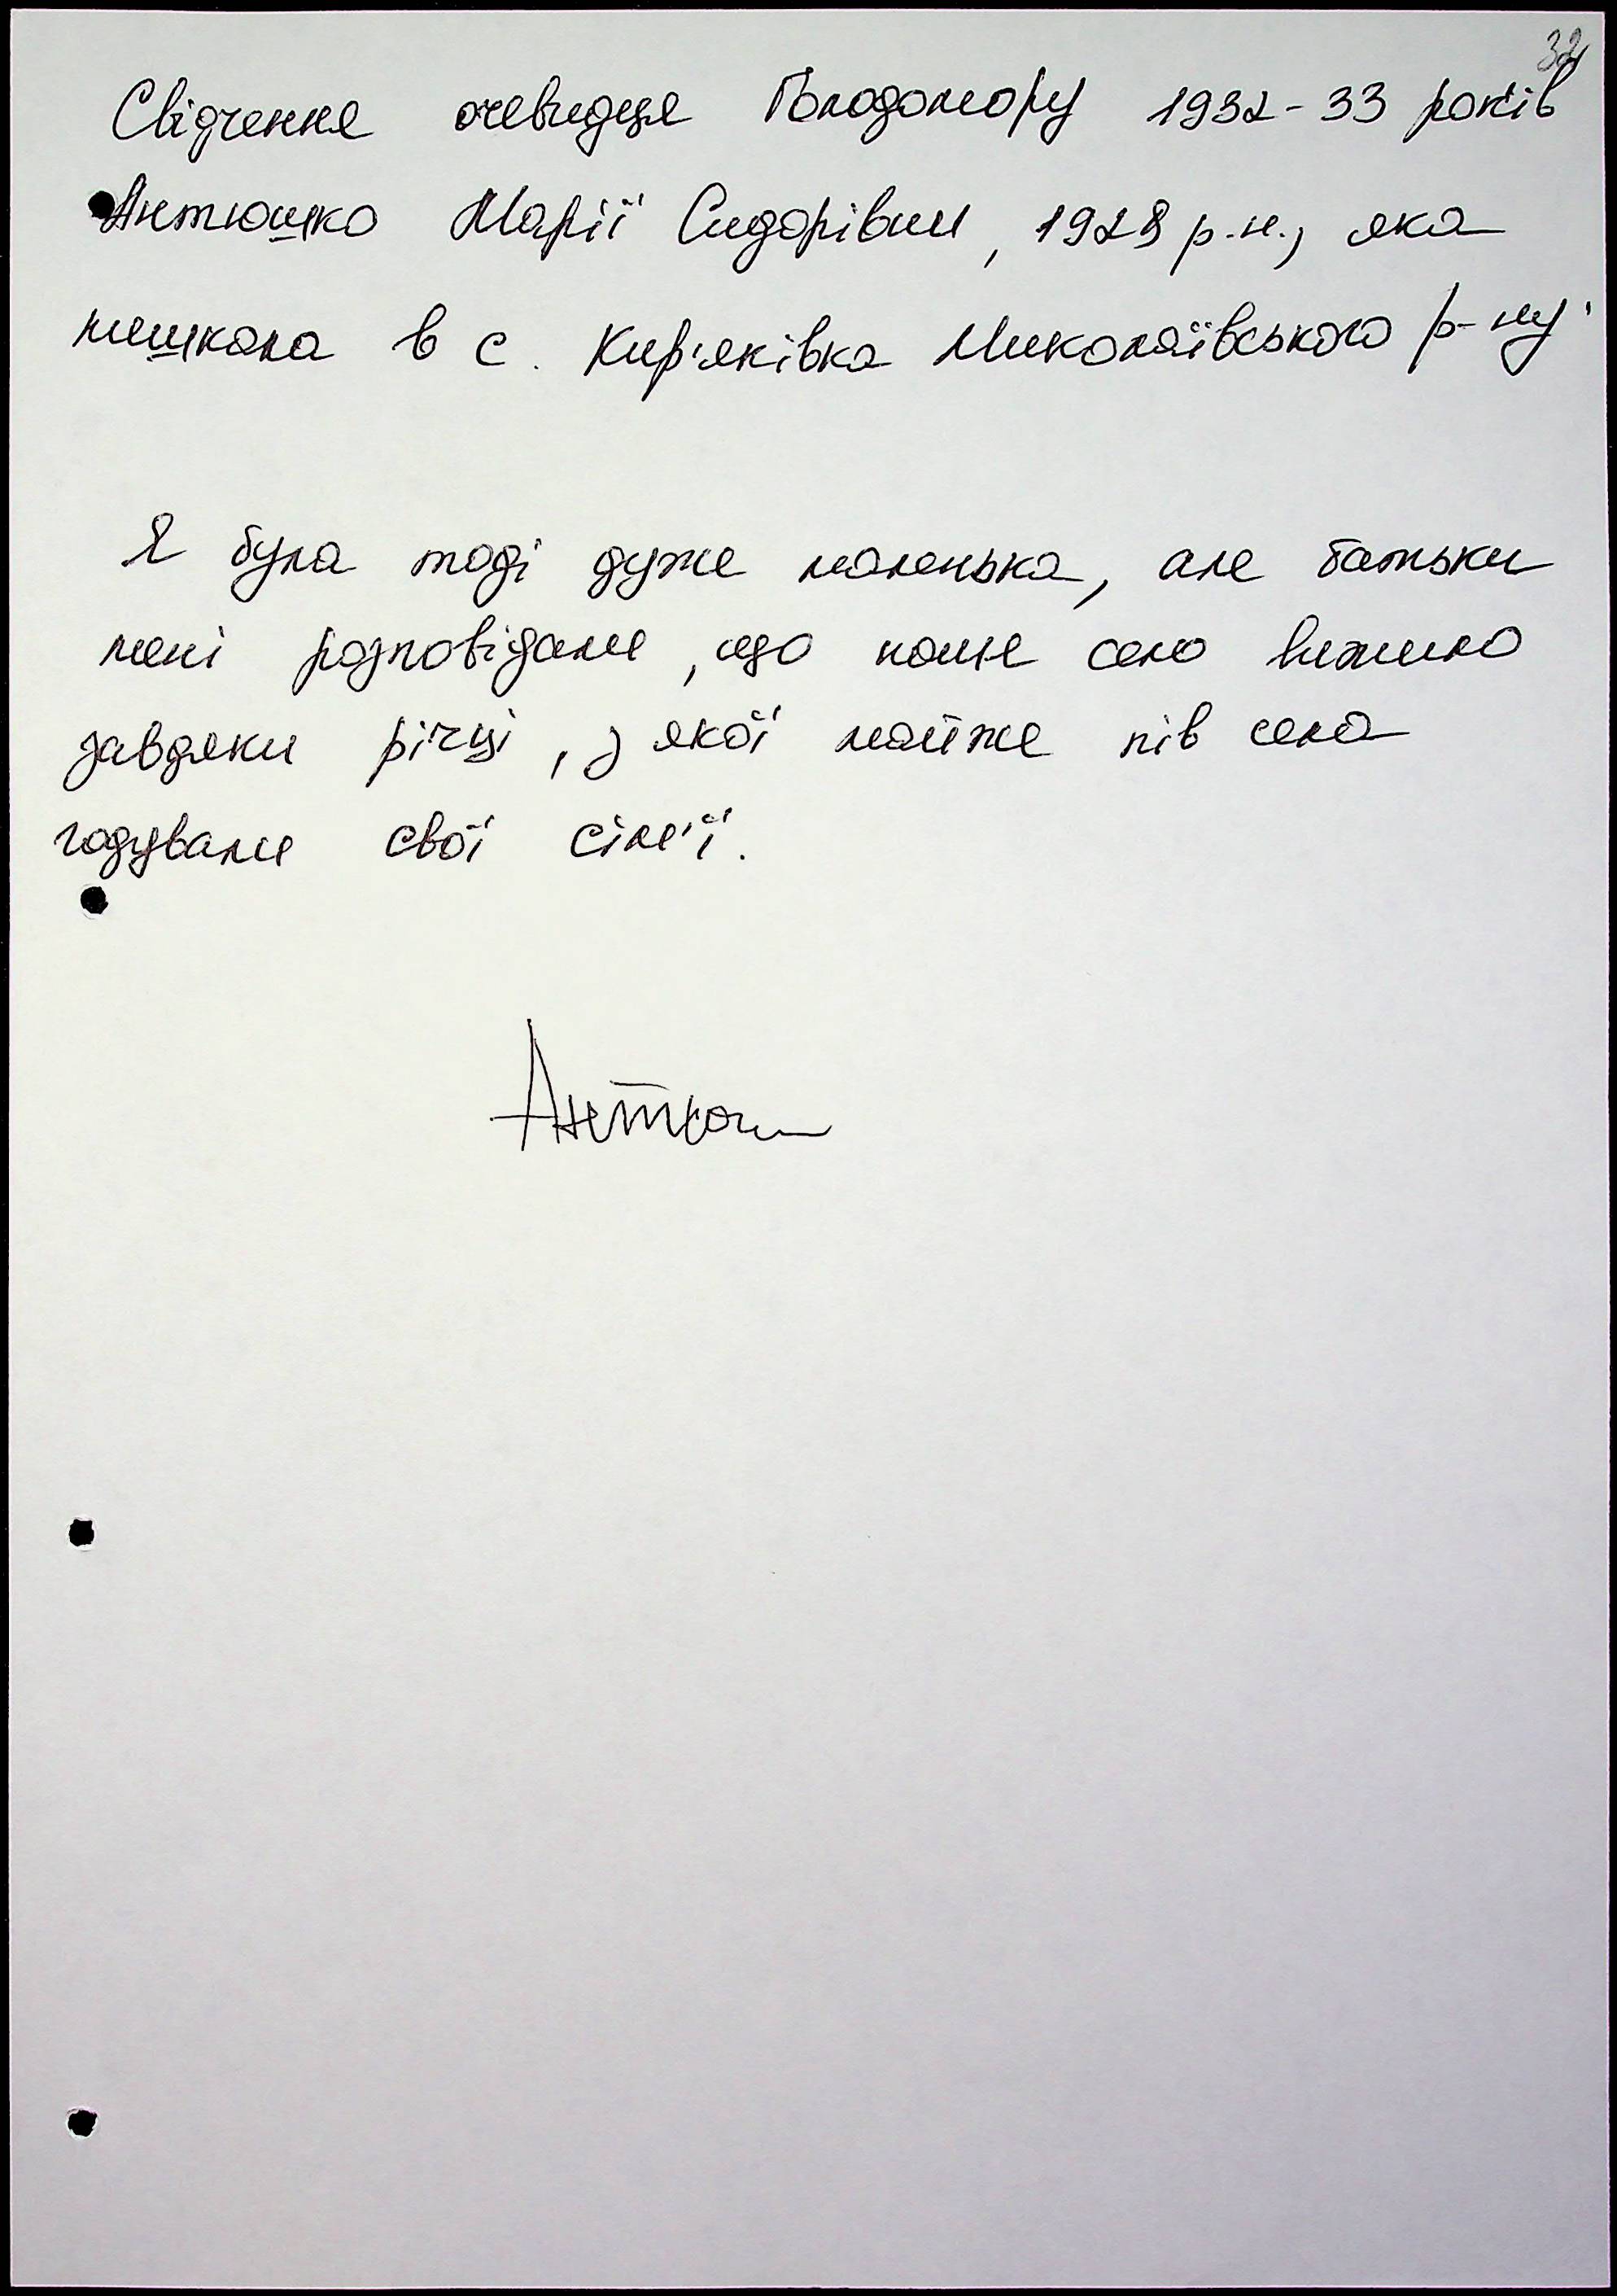 32
Свідчення очевидця Голодомору 1932-33 років
Антюшко Марії Сидорівни, 1928 р.н., яка
мешкала в с. Кир'яківка Миколаївського р-ну
Я була тоді дуже маленька, але батьки
мені розповідали, що наше село вижило
завдяки річці, з якої майже пів села
годували свої сім'ї.
Антюш